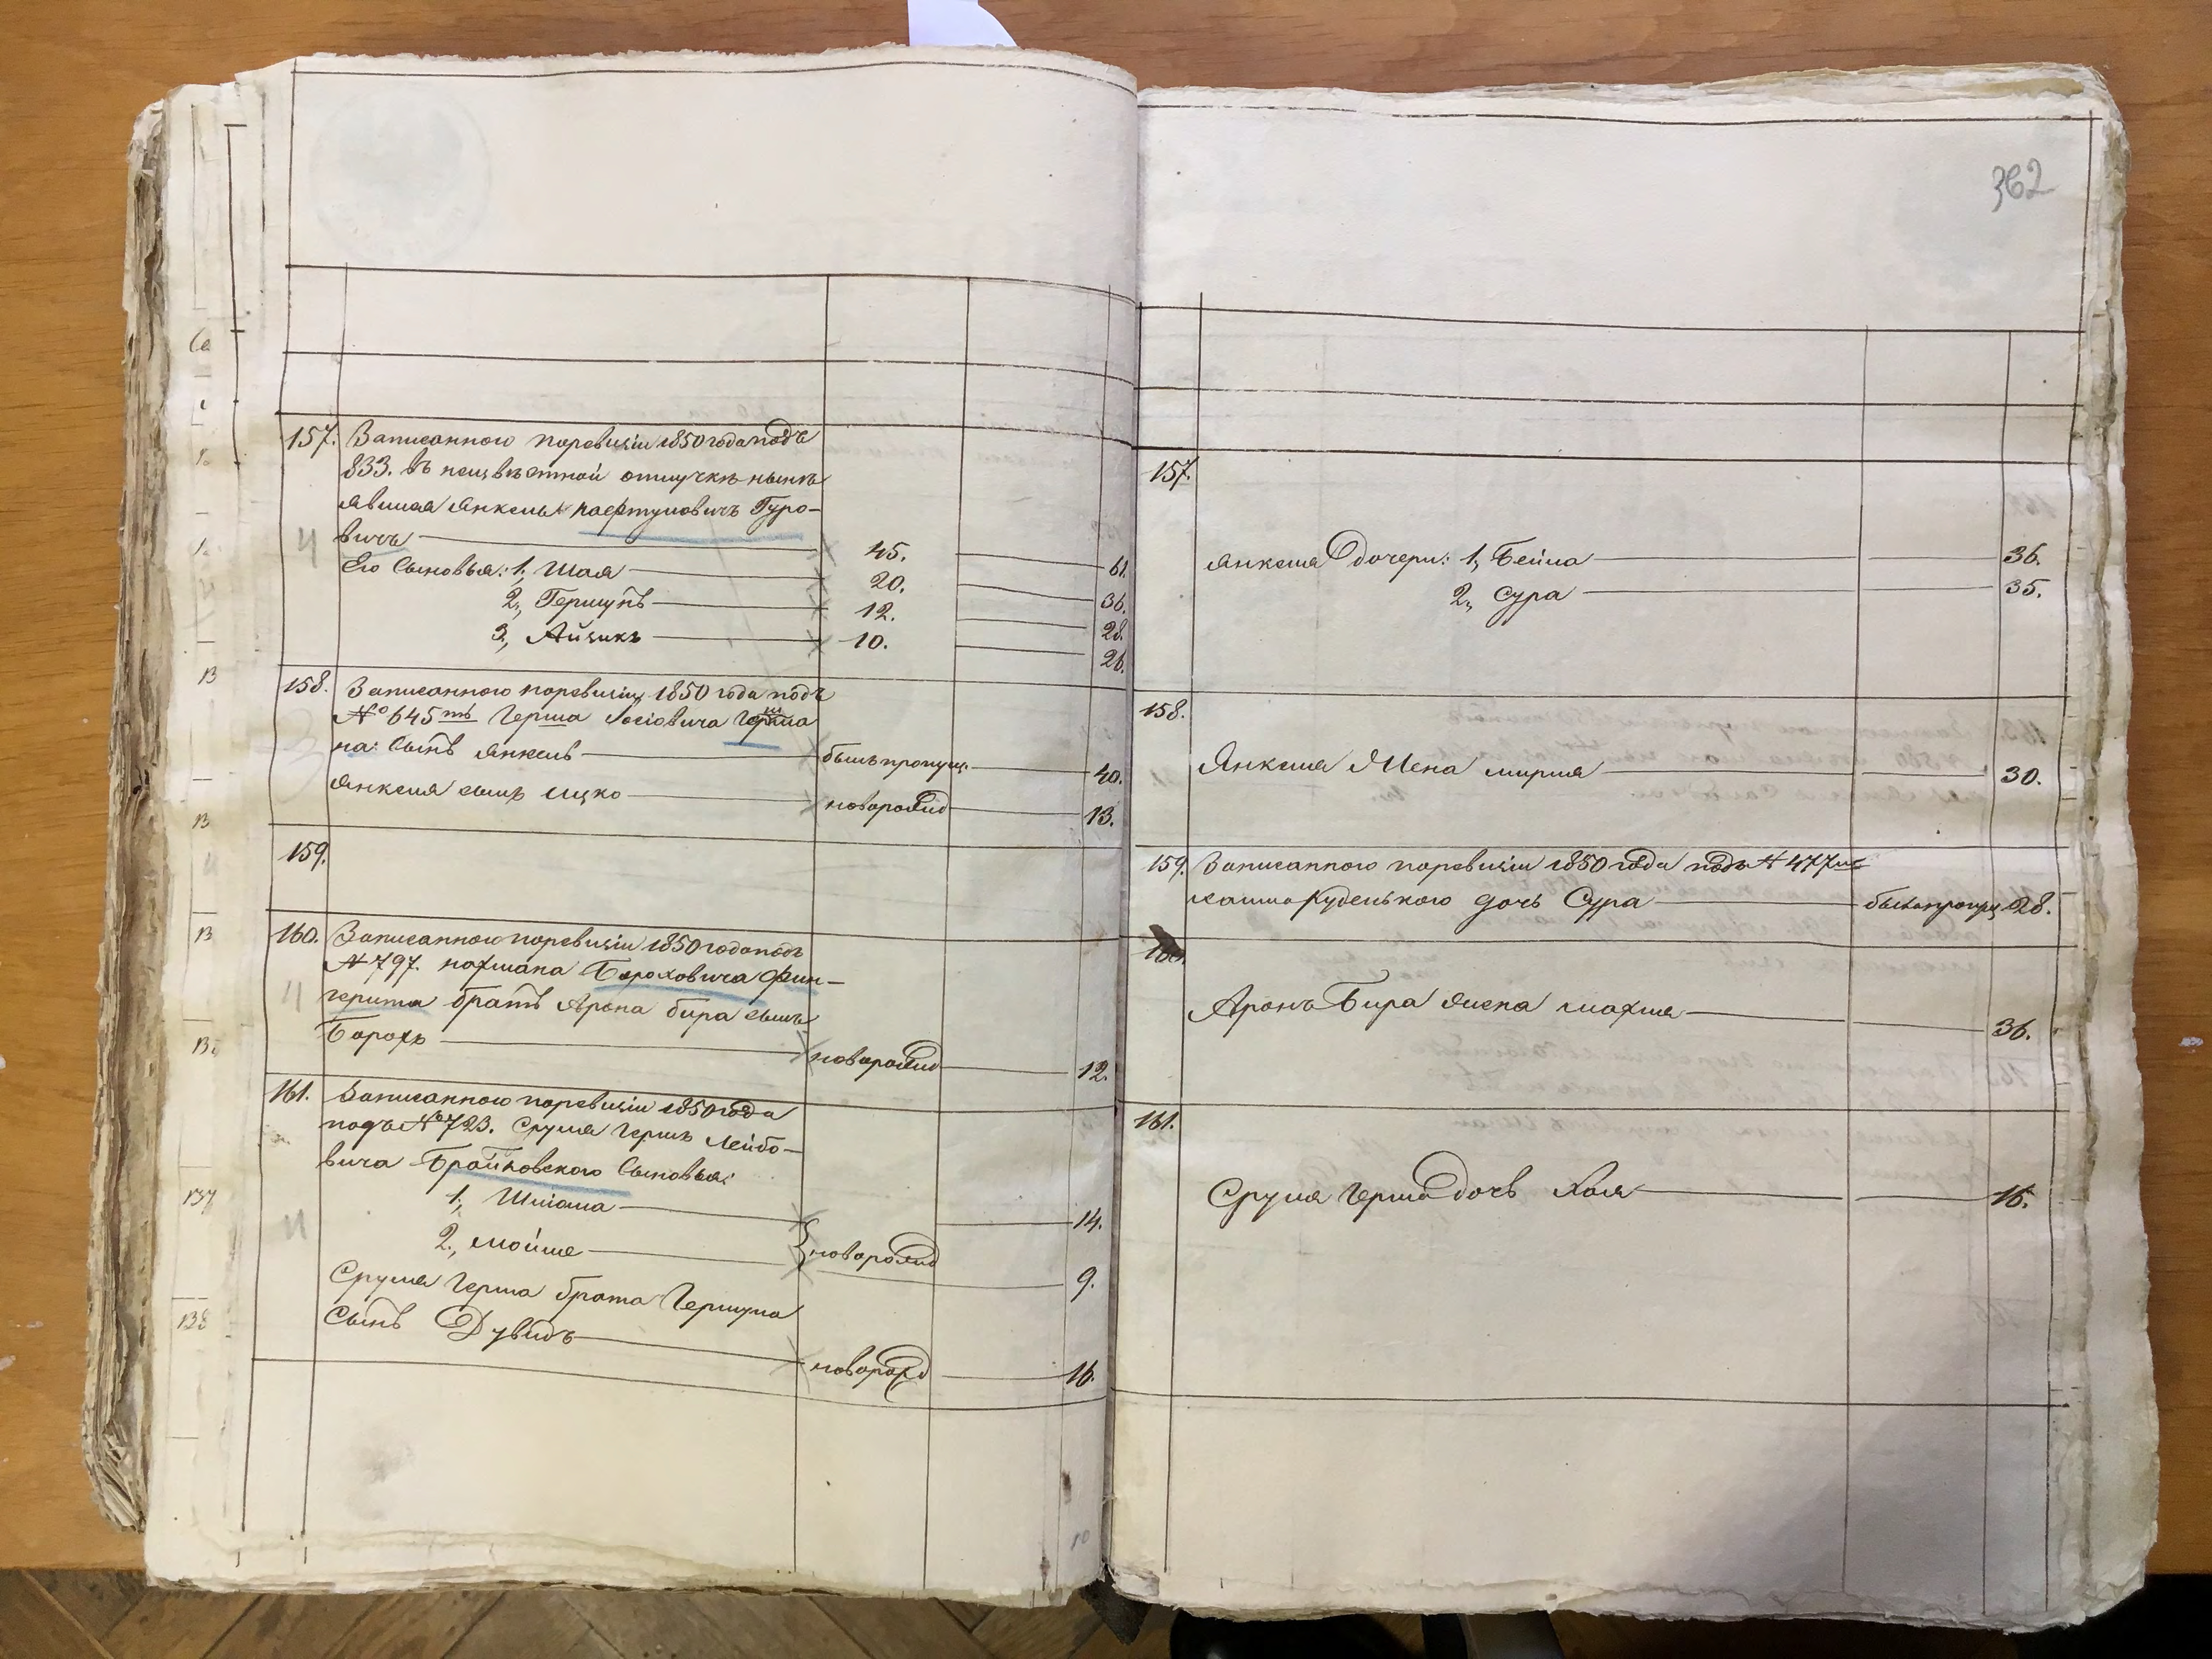 362
157. Записанного поревизіи 1850 года подъ
833. въ неизвѣстной отлучкѣ нынѣ
явился Янкель Нафтуловичъ Гуро-
вичъ 45. 61.
Его Сыновья: 1, Шая 20. 36.
2, Гершунъ 12. 28.
3, Айзикъ 10. 26.
158. Записанного поревизіи 1850 года подъ
№ 645мъ Герша Іосіовича
на: Сынъ Янкель былъ пропущ. 40.
Янкеля сынъ Ицко новорожд 13.
159.
160. Записанного поревизіи 1850 года подъ
№ 797. Нахмана Бороховича Фин-
герита братъ Арона Бира сынъ
Борохъ новорожд 12.
161. Записанного поревизіи 1850 года
подъ № 723. Сруля Герша Лейбо-
вича Браиловского Сыновья:
1, Шліома 14.
2, Мойше новорожд 9.
Сруля Герша брата Гершуна
Сынъ Дувидъ новорожд 16.
157.
Янкеля дочери: 1, Бейла 36.
2, Сура 35.
158.
Янкеля Жена Мирля 30.
159. Записанного поревизіи 1850 года подъ № 477мъ
Руденького дочь Сура была пропущ 28.
160.
Аронъ Бира жена Махля 36.
161.
Сруля Герша дочь Хая 15.